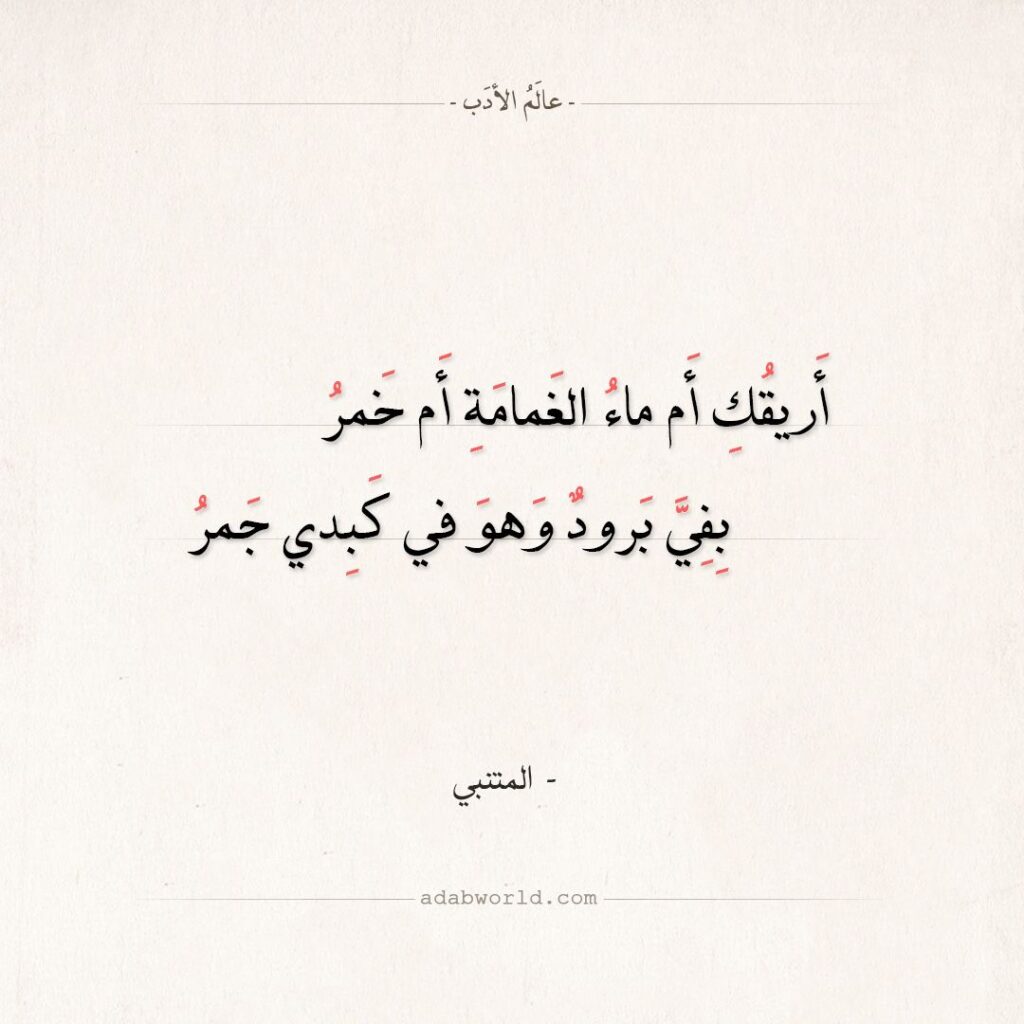 - عالَمُ الأدَب -
أَريقُكِ أَم ماءُ الغَمامَةِ أَم خَمرُ
بِفِيَّ بَرودٌ وَهوَ في كَبِدي جَمرُ
- المتنبي
adabworld.com